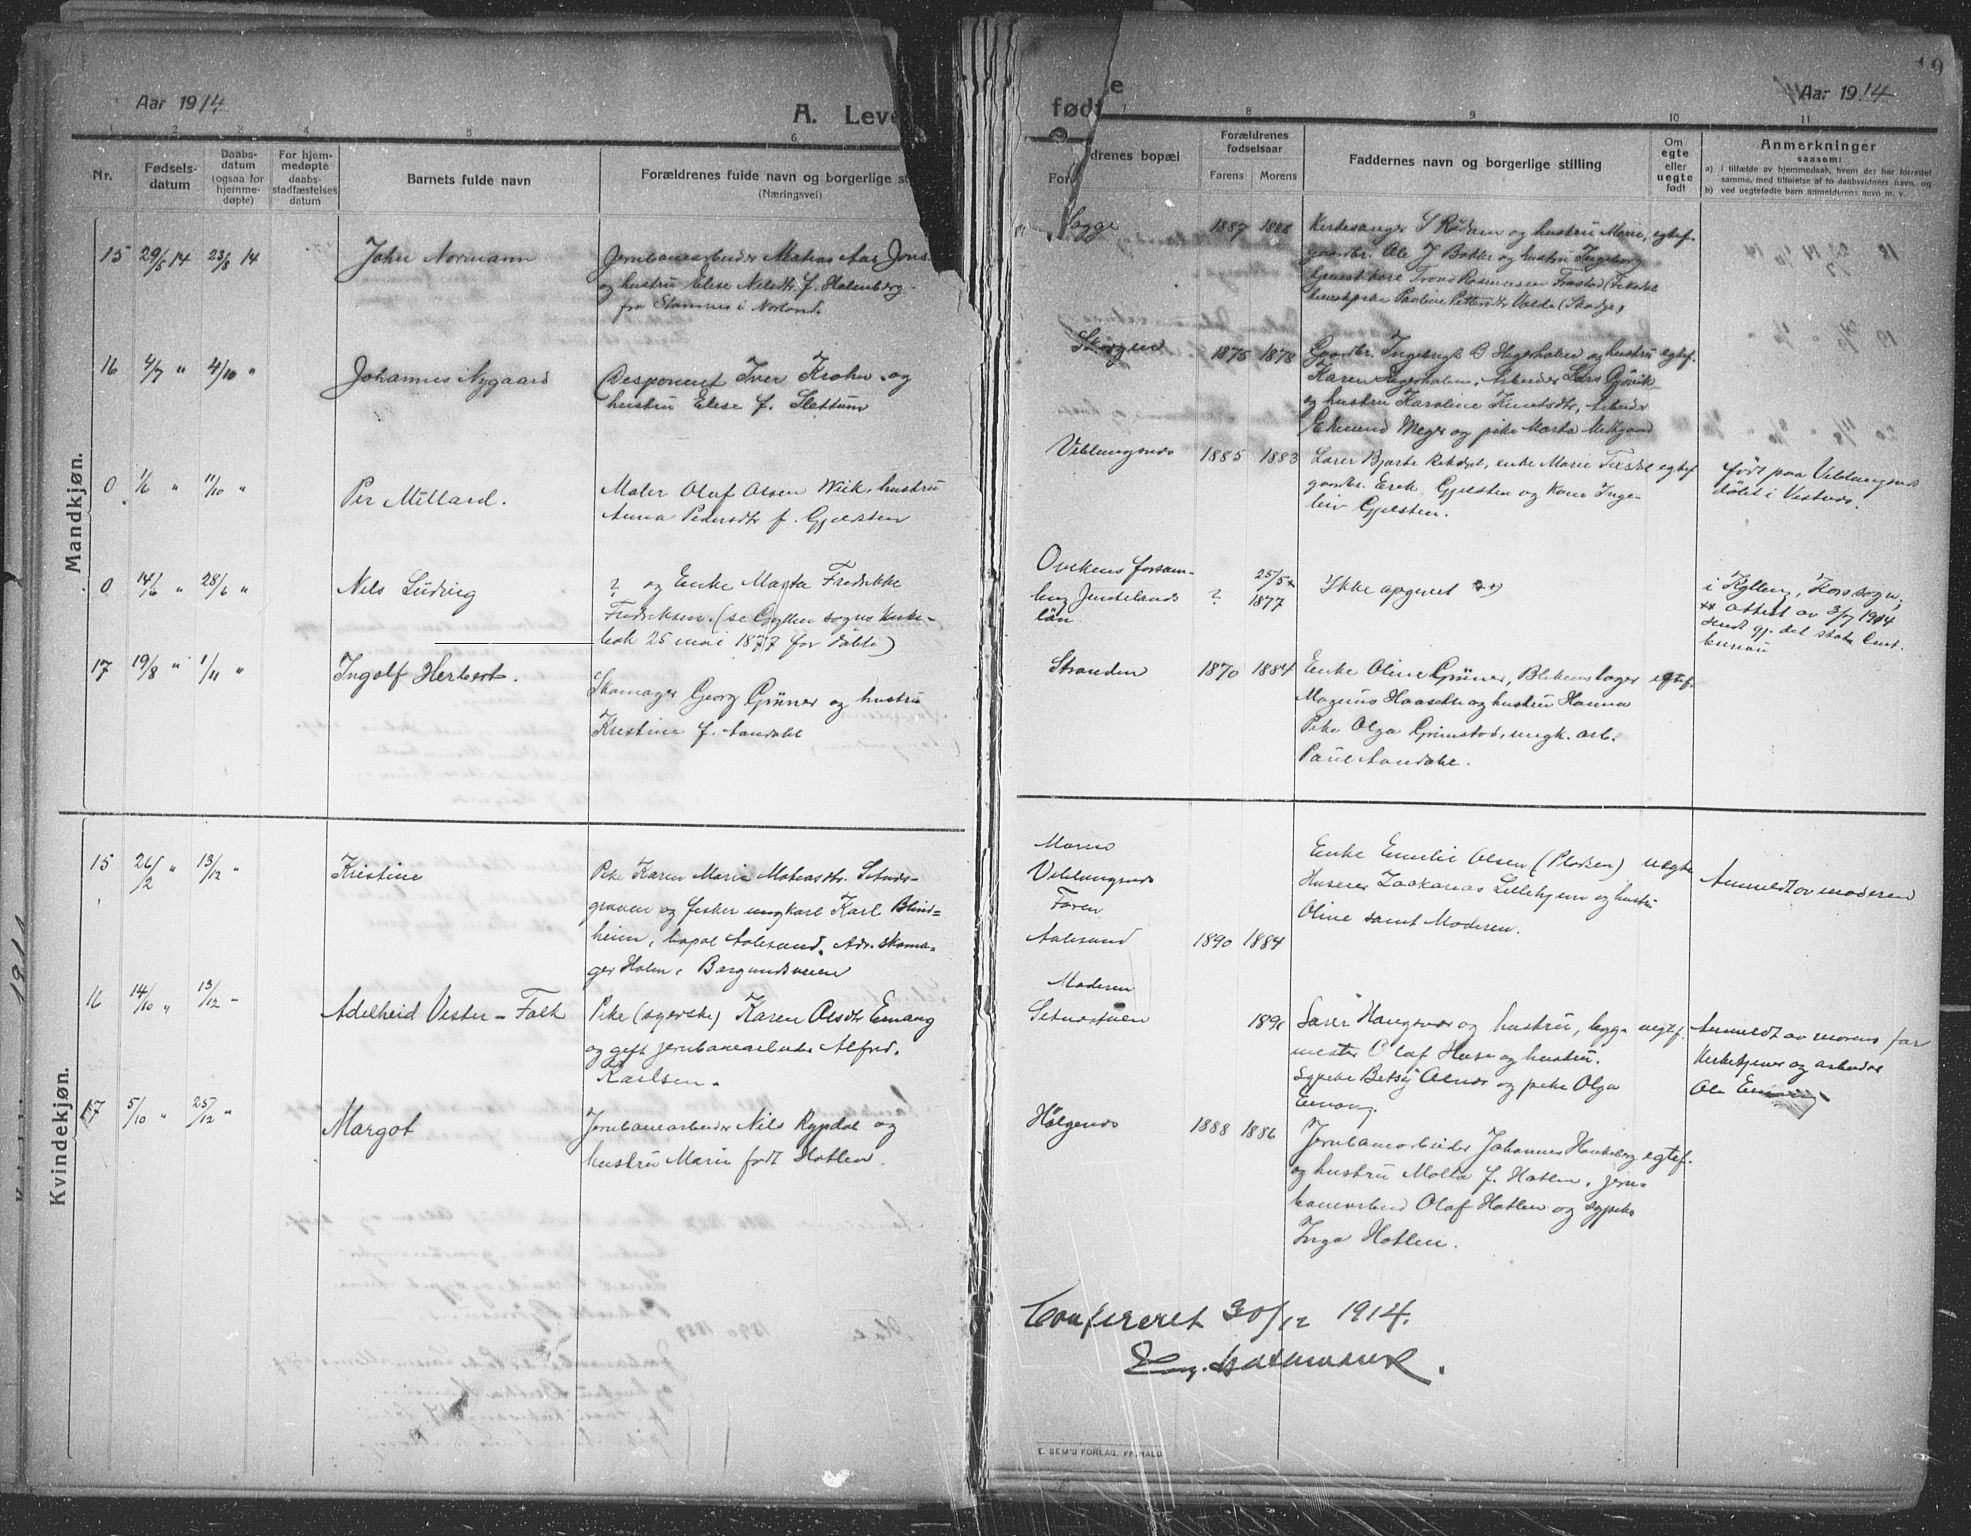 Aar 1914
A. Leve
1 2 3 4 5 6
Nr.
Fødsels-
datum
Daabs-
datum
(ogsaa for
hjemme-
døpte)
For hjem-
medøpte
daabs-
stadfæstelses
datum
Barnets fulde navn
Forældrenes fulde navn og borgerlige st
(Næringsvei)
Mandkjøn.
15 29/5 14 23/8 14 John Normann
Jernbanearbeider Mathias
og hustru Elise Nilsdtr. f. Holmberg
fra Stamnes i Norland
16 4/7 " 4/10 " Johannes Nygaard
Desponent Iver Krohn og
hustru Elise f. Slettum
0 1/6 " 11/10 " Per Millard.
Maler Olaf Olsen Wiik, hustru
Anna Pedersdtr f. Gjelsten
0 14/6 " 28/6 " Nils Ludvig
? og Enke Magta Fredrikke
Fredriksen. (se Gyllen sogns kirke-
bok 25 mai 1877 for døbte)
17 19/8 " 1/11 " Ingolf Herbert.
Skomager Georg Grüner og hustru
Kristine f. Aandahl
Kvindekjøn.
15 26/2 " 13/12 " Kristine
Pike Karen Marie Mathiasdtr. Setnes-
graven og fisker ungkarl Karl Blind=
heim, bopæl Aalesund. Adr. skoma-
ger Holm, Borgundsveien
16 14/10 " 13/12 - Adelheid Vester - Falk
Pike (syerske) Karen Olsdtr Einang
og gift jernbanearbeider Alfred
Karlsen.
17 5/10 " 25/12 " Margot
Jernbanearbeider Nils Rypdal og
hustru Marie født Hatlen.
te
født
19
Aar 1914
7 8 9 10 11
For
drenes bopæl
Forældrenes
fødselsaar
Farens Morens
Faddernes navn og borgerlige stilling
Om
egte
eller
uegte
født
Anmerkninger
saasom:
a) i tilfælde av hjemmedaab, hvem der har forrettet
samme, med tilføielse af to daabsvidners navn, og
b) ved uegtefødte barn anmelderens navn m. v.
Sogge 1887 1888
Kirkesanger S Rødven og hustru Marie, egtef.
gaardbr. Ole J Bakke og hustru Ingeborg
Trond Rasmussen
Pauline Pettersdtr Volda (Skodje)
Skorgen 1875 1878
Gaardbr. Ingebrigt B Hegerholm og hustru egtef.
Karen Hegerholm, Arbeider Lars Gjøvik
og hustru Karoline Knutsdtr, Arbeider
Edmund Meyer og pike Marta
Veblungsnes 1885 1883
Lærer Bjarte Rekdal, enke Marie egtef
gaardbr. Erik Gjelsten og kone Inge-
leiv Gjelsten.
født paa Veblungsnes
døbt i Vestnes.
Ovikens forsam-
ling Jemtelands
län
? 25/5 x
1877
Ikke opgivet
i Kyllen, Kors sogn,
xx attest av 3/7 1914
sendt gj. det stat. Cent.
bureau
Stranden 1870 1884
Enke Oline Grüner, Blikenslager egtef.
Magnus Haaseth og hustru Hanna
Pike Olga Grimstad, ungk. arb.
Paul Aandahl.
Moren
Veblungsnes
Faren
Aalesund 1890 1884
Enke Emelie Olsen (Pladsen) uegte
Huseier Zakarias Lillehjem og hustru
Oline samt Moderen.
Anmeldt av moderen
Moderen
Setnesmoen
Lærer Hangsnes og hustru, bygg- uegtef.
mester Olaf Huse og hustru.
Sypike Betsy Olsnes og pike Olga
Einang.
Anmeldt av morens far
Kirketjener og arbeider
Ole
Hølgenes 1888 1886
Jernbanearbeider Johannes Haukeberg egtef.
og hustru Molla f. Hatlen. jern-
banearbeid Olaf Hatlen og sypike
Inga Hatlen.
Confereret 30/12 1914.
E. SEM'S FORLAG, FR.HALD